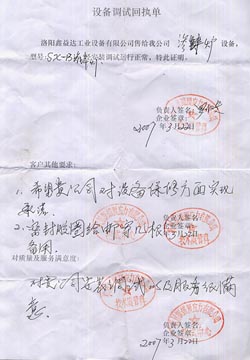 设备调试回执单
洛阳鑫益达工业设备有限公司售给我公司 设备,
型号: 安装调试运行正常,特此证明。
负责人签名:
企业签章:
2007年3月22日
客户其他要求:
1. 希望贵公司对设备保修方面实现
承诺。
2. 密封胶圈给邮寄几根
备用。
对质量及服务满意度:
对贵公司安装调试以及服务很满
意
负责人签名:
企业签章:
2007年3月22日